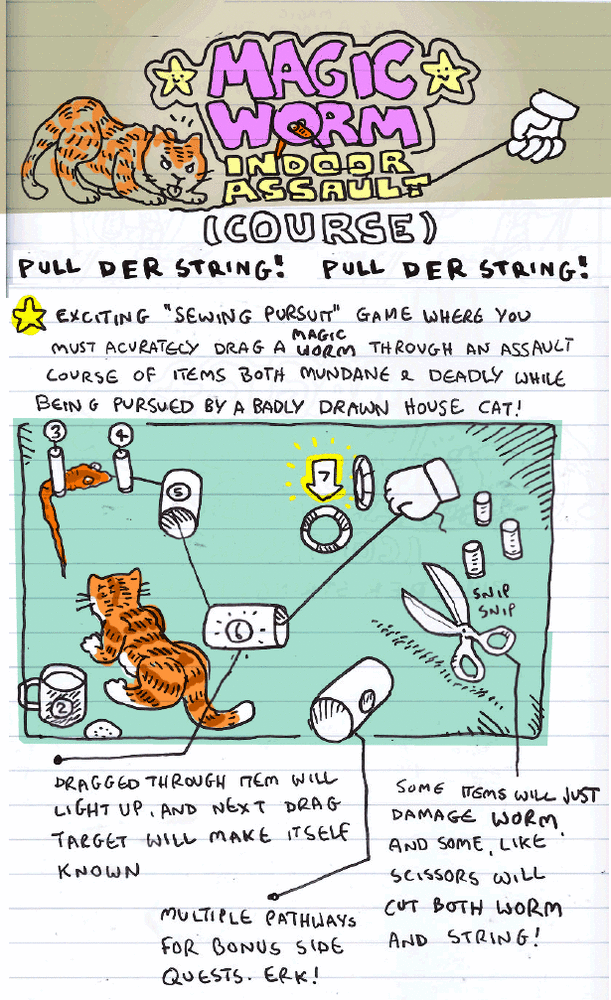 MAGIC
WORM
INDOOR
ASSAULT
(COURSE)
PULL DER STRING! PULL DER STRING!
EXCITING "SEWING PURSUIT" GAME WHERE YOU
MUST ACURATELY DRAG A MAGIC WORM THROUGH AN ASSAULT
COURSE OF ITEMS BOTH MUNDANE & DEADLY WHILE
BEING PURSUED BY A BADLY DRAWN HOUSE CAT!
3
4
5
7
6
2
SNIP
SNIP
DRAGGED THROUGH ITEM WILL
LIGHT UP, AND NEXT DRAG
TARGET WILL MAKE ITSELF
KNOWN
MULTIPLE PATHWAYS
FOR BONUS SIDE
QUESTS. ERK!
SOME ITEMS WILL JUST
DAMAGE WORM,
AND SOME, LIKE
SCISSORS WILL
CUT BOTH WORM
AND STRING!